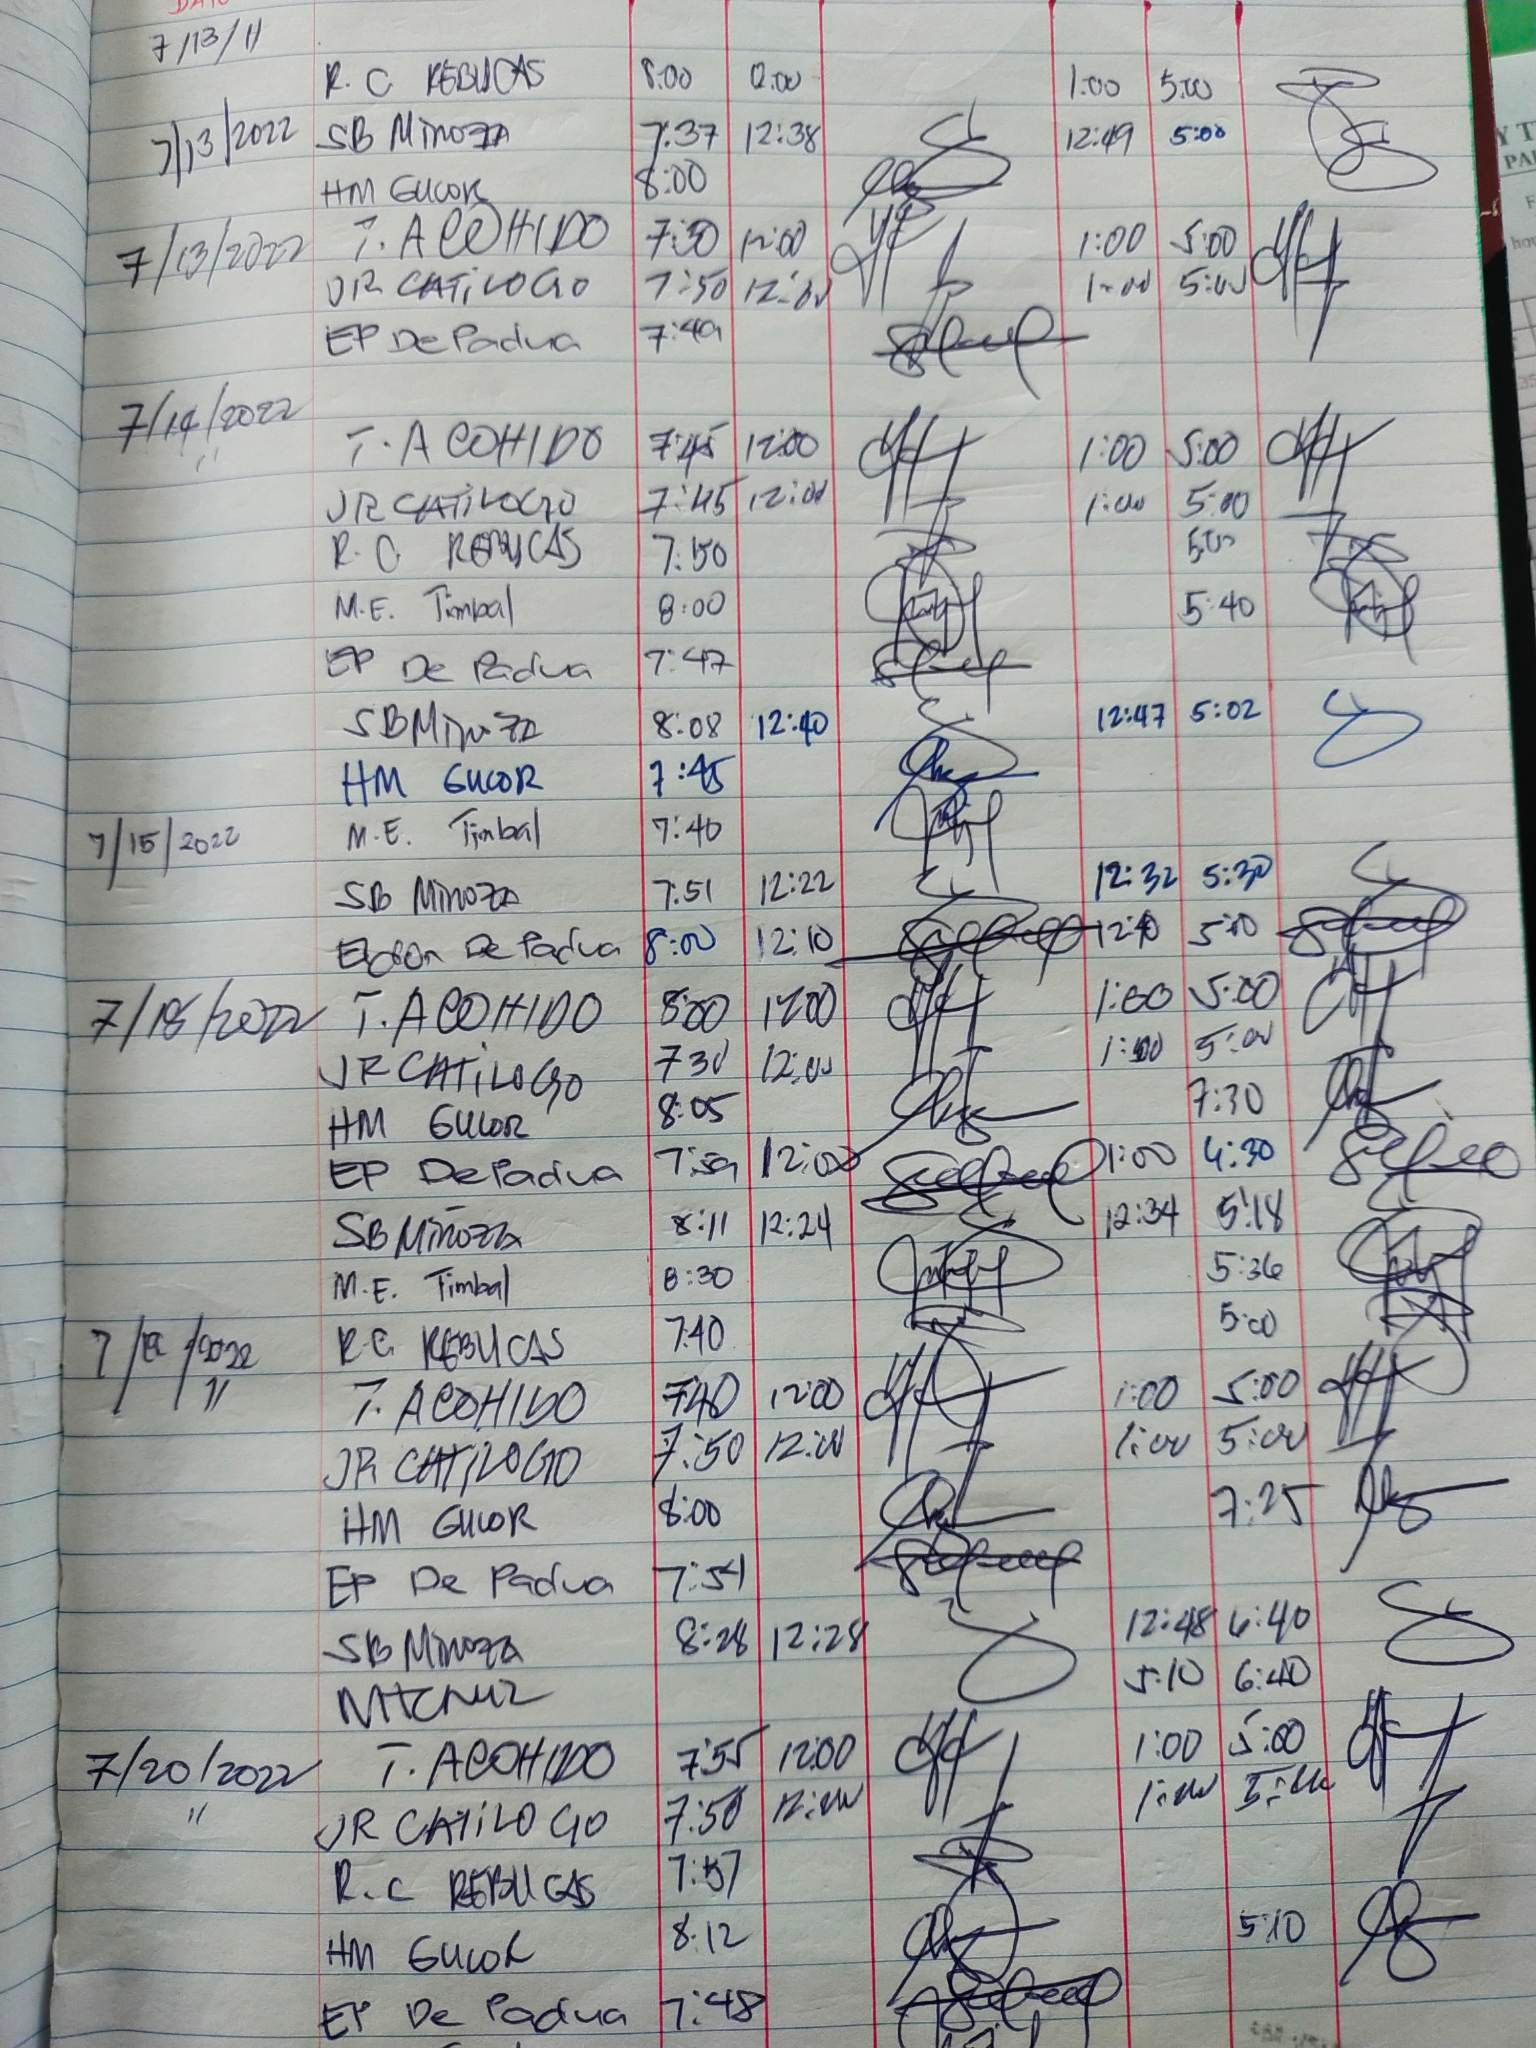 DATE
7/13/11
R. C REBUCAS 8:00 12:00 1:00 5:00
7/13/2022 SB Minoza 7:37 12:38 12:49 5:00
HM GUCOR 8:00
7/13/2022 T. ACOHIDO 7:30 12:00 1:00 5:00
JR CATILOGO 7:50 12:00 1:00 5:00
EP De Padua 7:49
7/14/2022 T. ACOHIDO 7:45 12:00 1:00 5:00
" JR CATILOGO 7:45 12:00 1:00 5:00
R. C. REBUCAS 7:50 5:00
M.E. Timbal 8:00 5:40
EP De Padua 7:47
SB Minoza 8:08 12:40 12:47 5:02
HM GUCOR 7:45
7/15/2022 M.E. Timbal 7:40
SB Minoza 7:51 12:22 12:32 5:30
Edson De Padua 8:00 12:10 5:10
7/18/2022 T. ACOHIDO 8:00 12:00 1:00 5:00
JR CATILOGO 7 30 12:00 1:00 5:00
HM GUCOR 8:05 7:30
EP De Padua 7:59 12:00 1:00 4:30
SB Miñoza 8:11 12:24 12:34 5:18
M.E. Timbal 8:30 5:36
7/ /2022 R.C REBUCAS 7:40 5:00
" T. ACOHIDO 7:40 12:00 1:00 5:00
JR CATILOGO 7:50 12:00 1:00 5:00
HM GUCOR 8:00 7:25
EP De Padua 7:54
SB Minoza 8:28 12:28 12:48 6:40
5:10 6:40
7/20/2022 T. ACOHIDO 7:55 12:00 1:00 5:00
" JR CATILOGO 7:50 12:00 1:00 5:00
R.C REBUCAS 7:57
HM GUCOR 8:12 5:10
EP De Padua 7:48